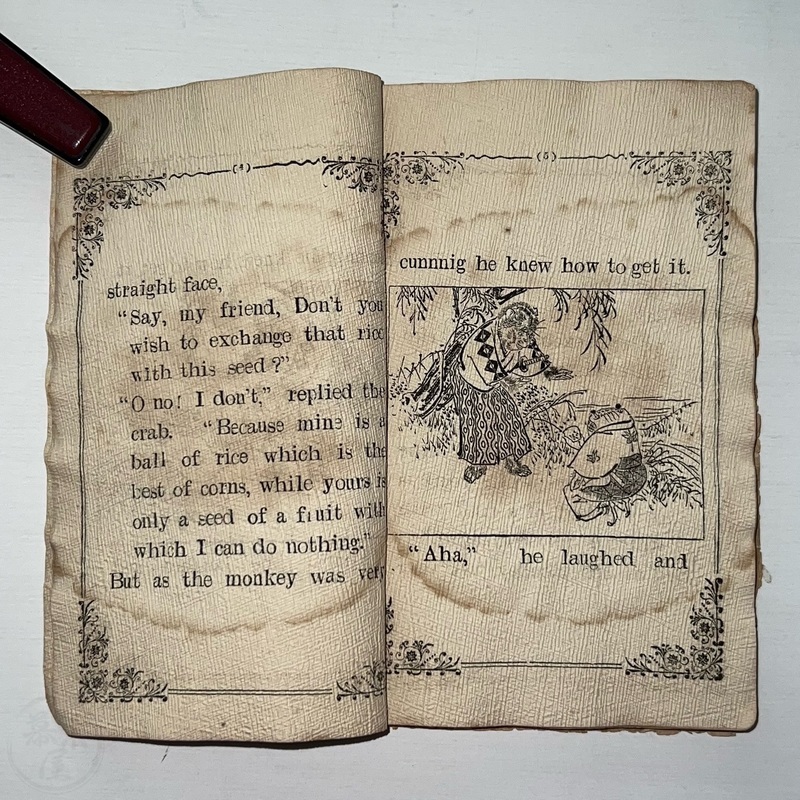 (4)
straight face,
"Say, my friend, Don't you
wish to exchange that rice
with this seed?"
"O no! I don't," replied the
crab. "Because mine is a
ball of rice which is the
best of corns, while yours is
only a seed of a fruit with
which I can do nothing."
But as the monkey was very
(5)
cunnnig he knew how to get it.
"Aha," he laughed and